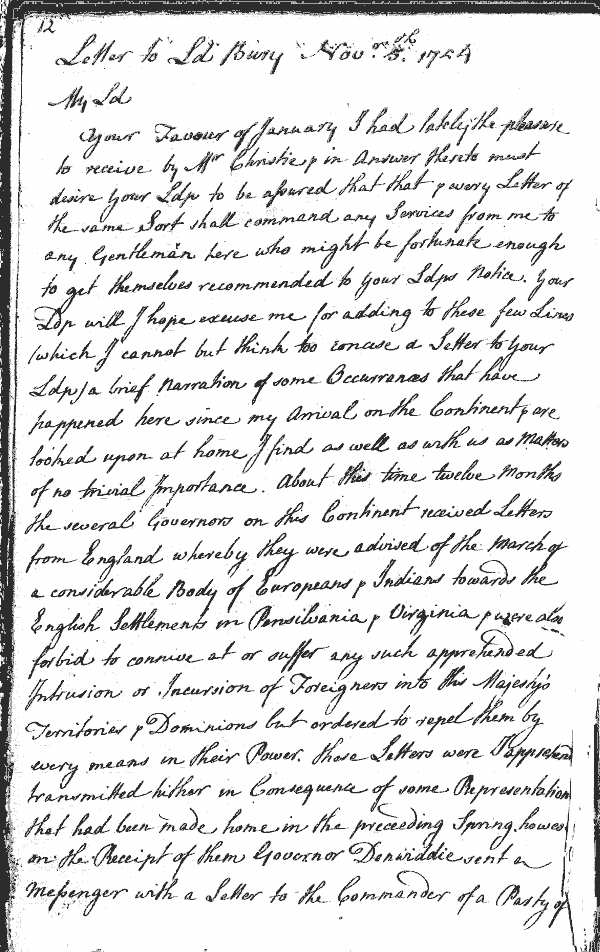 12
Letter to Ld Bury Novr. 5th. 1754
My Ld
Your Favour of January I had lately the pleasure
to receive by Mr Christie & in Answer thereto must
desire Your Ldp to be assured that that & every Letter of
the same Sort shall command any Services from me to
any Gentleman here who might be fortunate enough
to get themselves recommended to Your Ldps Notice. Your
Ldp will I hope excuse me for adding to these few Lines
(which I cannot but think too concise a Letter to Your
Ldp) a brief Narration of some Occurrances that have
happened here since my Arrival on the Continent & are
looked upon at home I find as well as with us as Matters
of no trivial Importance. About this time twelve Months
the several Governors on this Continent received Letters
from England whereby they were advised of the March of
a considerable Body of Europeans & Indians towards the
English Settlements in Pensilvania & Virginia & were also
forbid to connive at or suffer any such apprehended
Intrusion or Incursion of Foreigners into his Majesty's
Territories & Dominions but ordered to repel them by
every means in their Power. those Letters were I apprehend
transmitted hither in Consequence of some Representation
that had been made home in the preceeding Spring. howev
on the Receipt of them Governor Denwiddie sent a
Messenger with a Letter to the Commander of a Party of